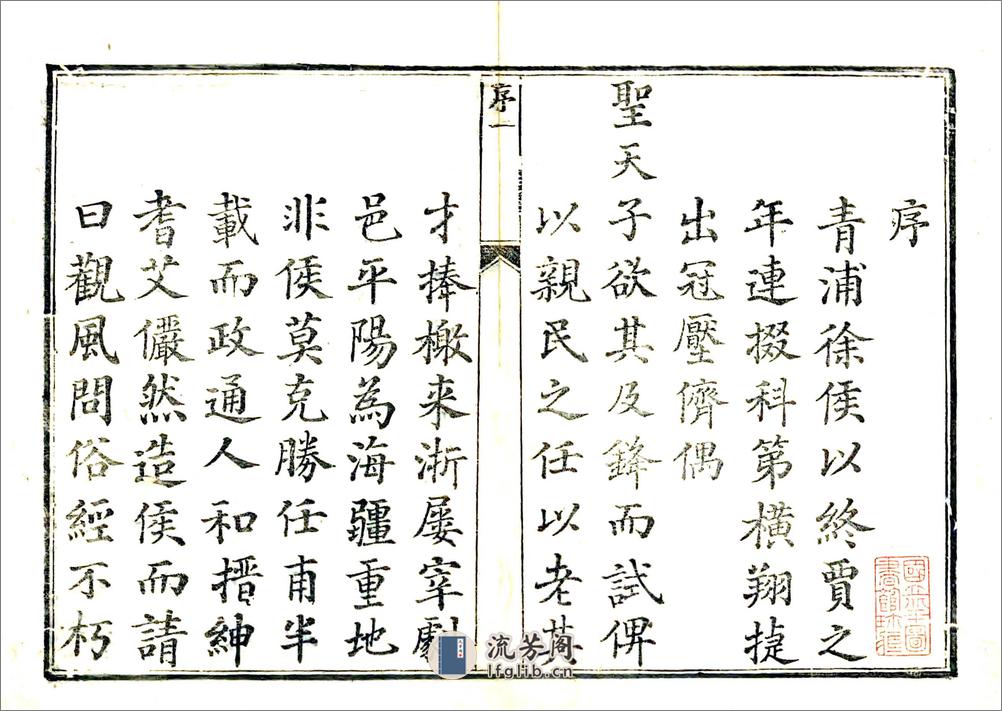 序
青浦徐侯以終賈之
年連掇科第橫翔捷
出冠壓儕偶
聖天子欲其及鋒而試俾
以親民之任以老其
序一
才捧檄来浙屡宰劇
邑平陽為海疆重地
非侯莫克勝任甫半
載而政通人和搢紳
耆艾儼然造侯而請
曰觀風問俗經不朽
國立北平圖
書館珍藏
流芳阁
lfglib.cn